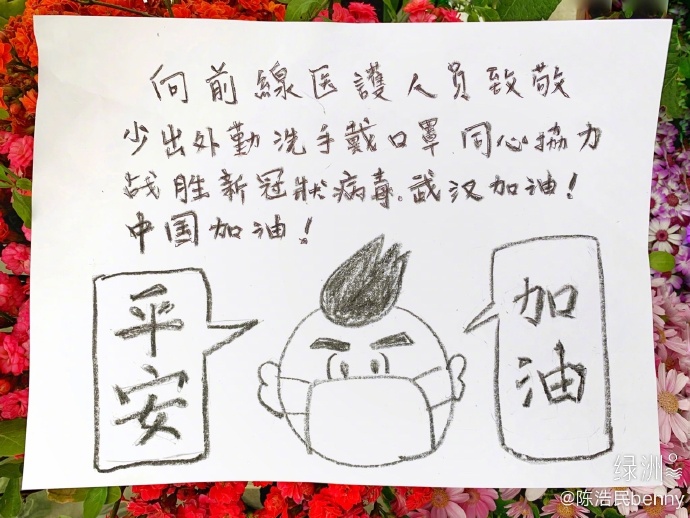 向前線医護人员致敬
少出外勤洗手戴口罩同心協力
战胜新冠狀病毒.武汉加油!
中国加油!
平安
加油
绿洲
@陈浩民benny